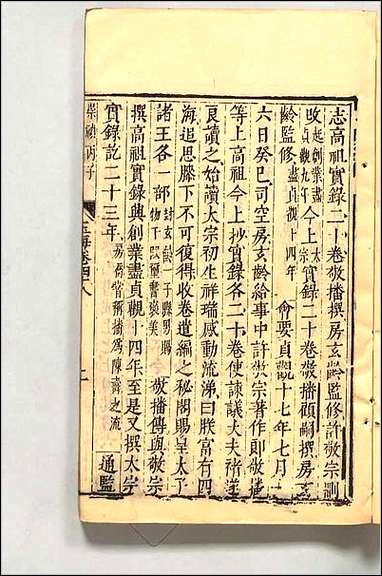 志高祖實錄二十卷敬播撰房玄齡監修許敬宗刪
改起創業盡貞觀九年今上太宗實錄二十卷敬播顧嗣撰房玄
齡監修盡貞觀十四年會要貞觀十七年七月十
六日癸巳司空房玄齡給事中許敬宗著作郎敬播
等上高祖今上抄實錄各二十卷使諫議大夫褚遂
良讀之始讀太宗初生祥瑞感動流涕曰朕富有四
海追思膝下不可復得收卷遣編之秘閣賜皇太子
諸王各一部封玄齡一子縣男賜物千段璽書褒美敬播傳與敬宗
撰高祖實錄興創業盡貞觀十四年至是又撰太宗
實錄訖二十三年房喬嘗稱播為陳壽之流通鑑
玉海卷四八
崇禎丙子